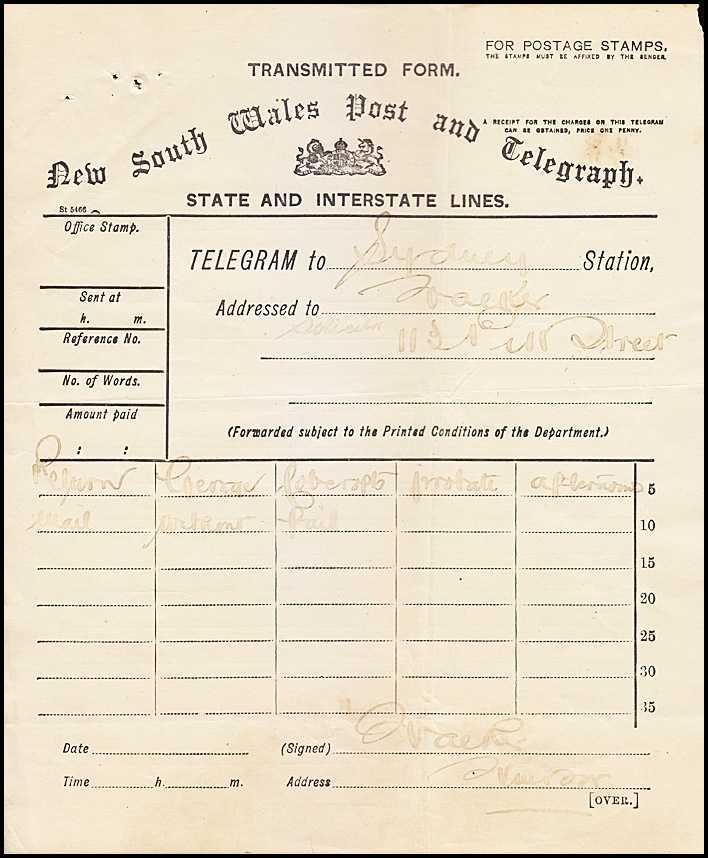 FOR POSTAGE STAMPS.
THE STAMPS MUST BE AFFIXED BY THE SENDER.
TRANSMITTED FORM.
A RECEIPT FOR THE CHARGES ON THIS TELEGRAM
CAN BE OBTAINED, PRICE ONE PENNY.
New South Wales Post and Telegraph.
STATE AND INTERSTATE LINES.
St 5466
Office Stamp.
TELEGRAM to Sydney Station,
Sent at
h. m.
Addressed to Walker
Solicitor 113 Pitt Street
Reference No.
No. of Words.
Amount paid
: :
(Forwarded subject to the Printed Conditions of the Department.)
Return George probate afternoons 5
mail without fail 10
15
20
25
30
35
Date (Signed) Walker
Time h. m. Address
[OVER.]